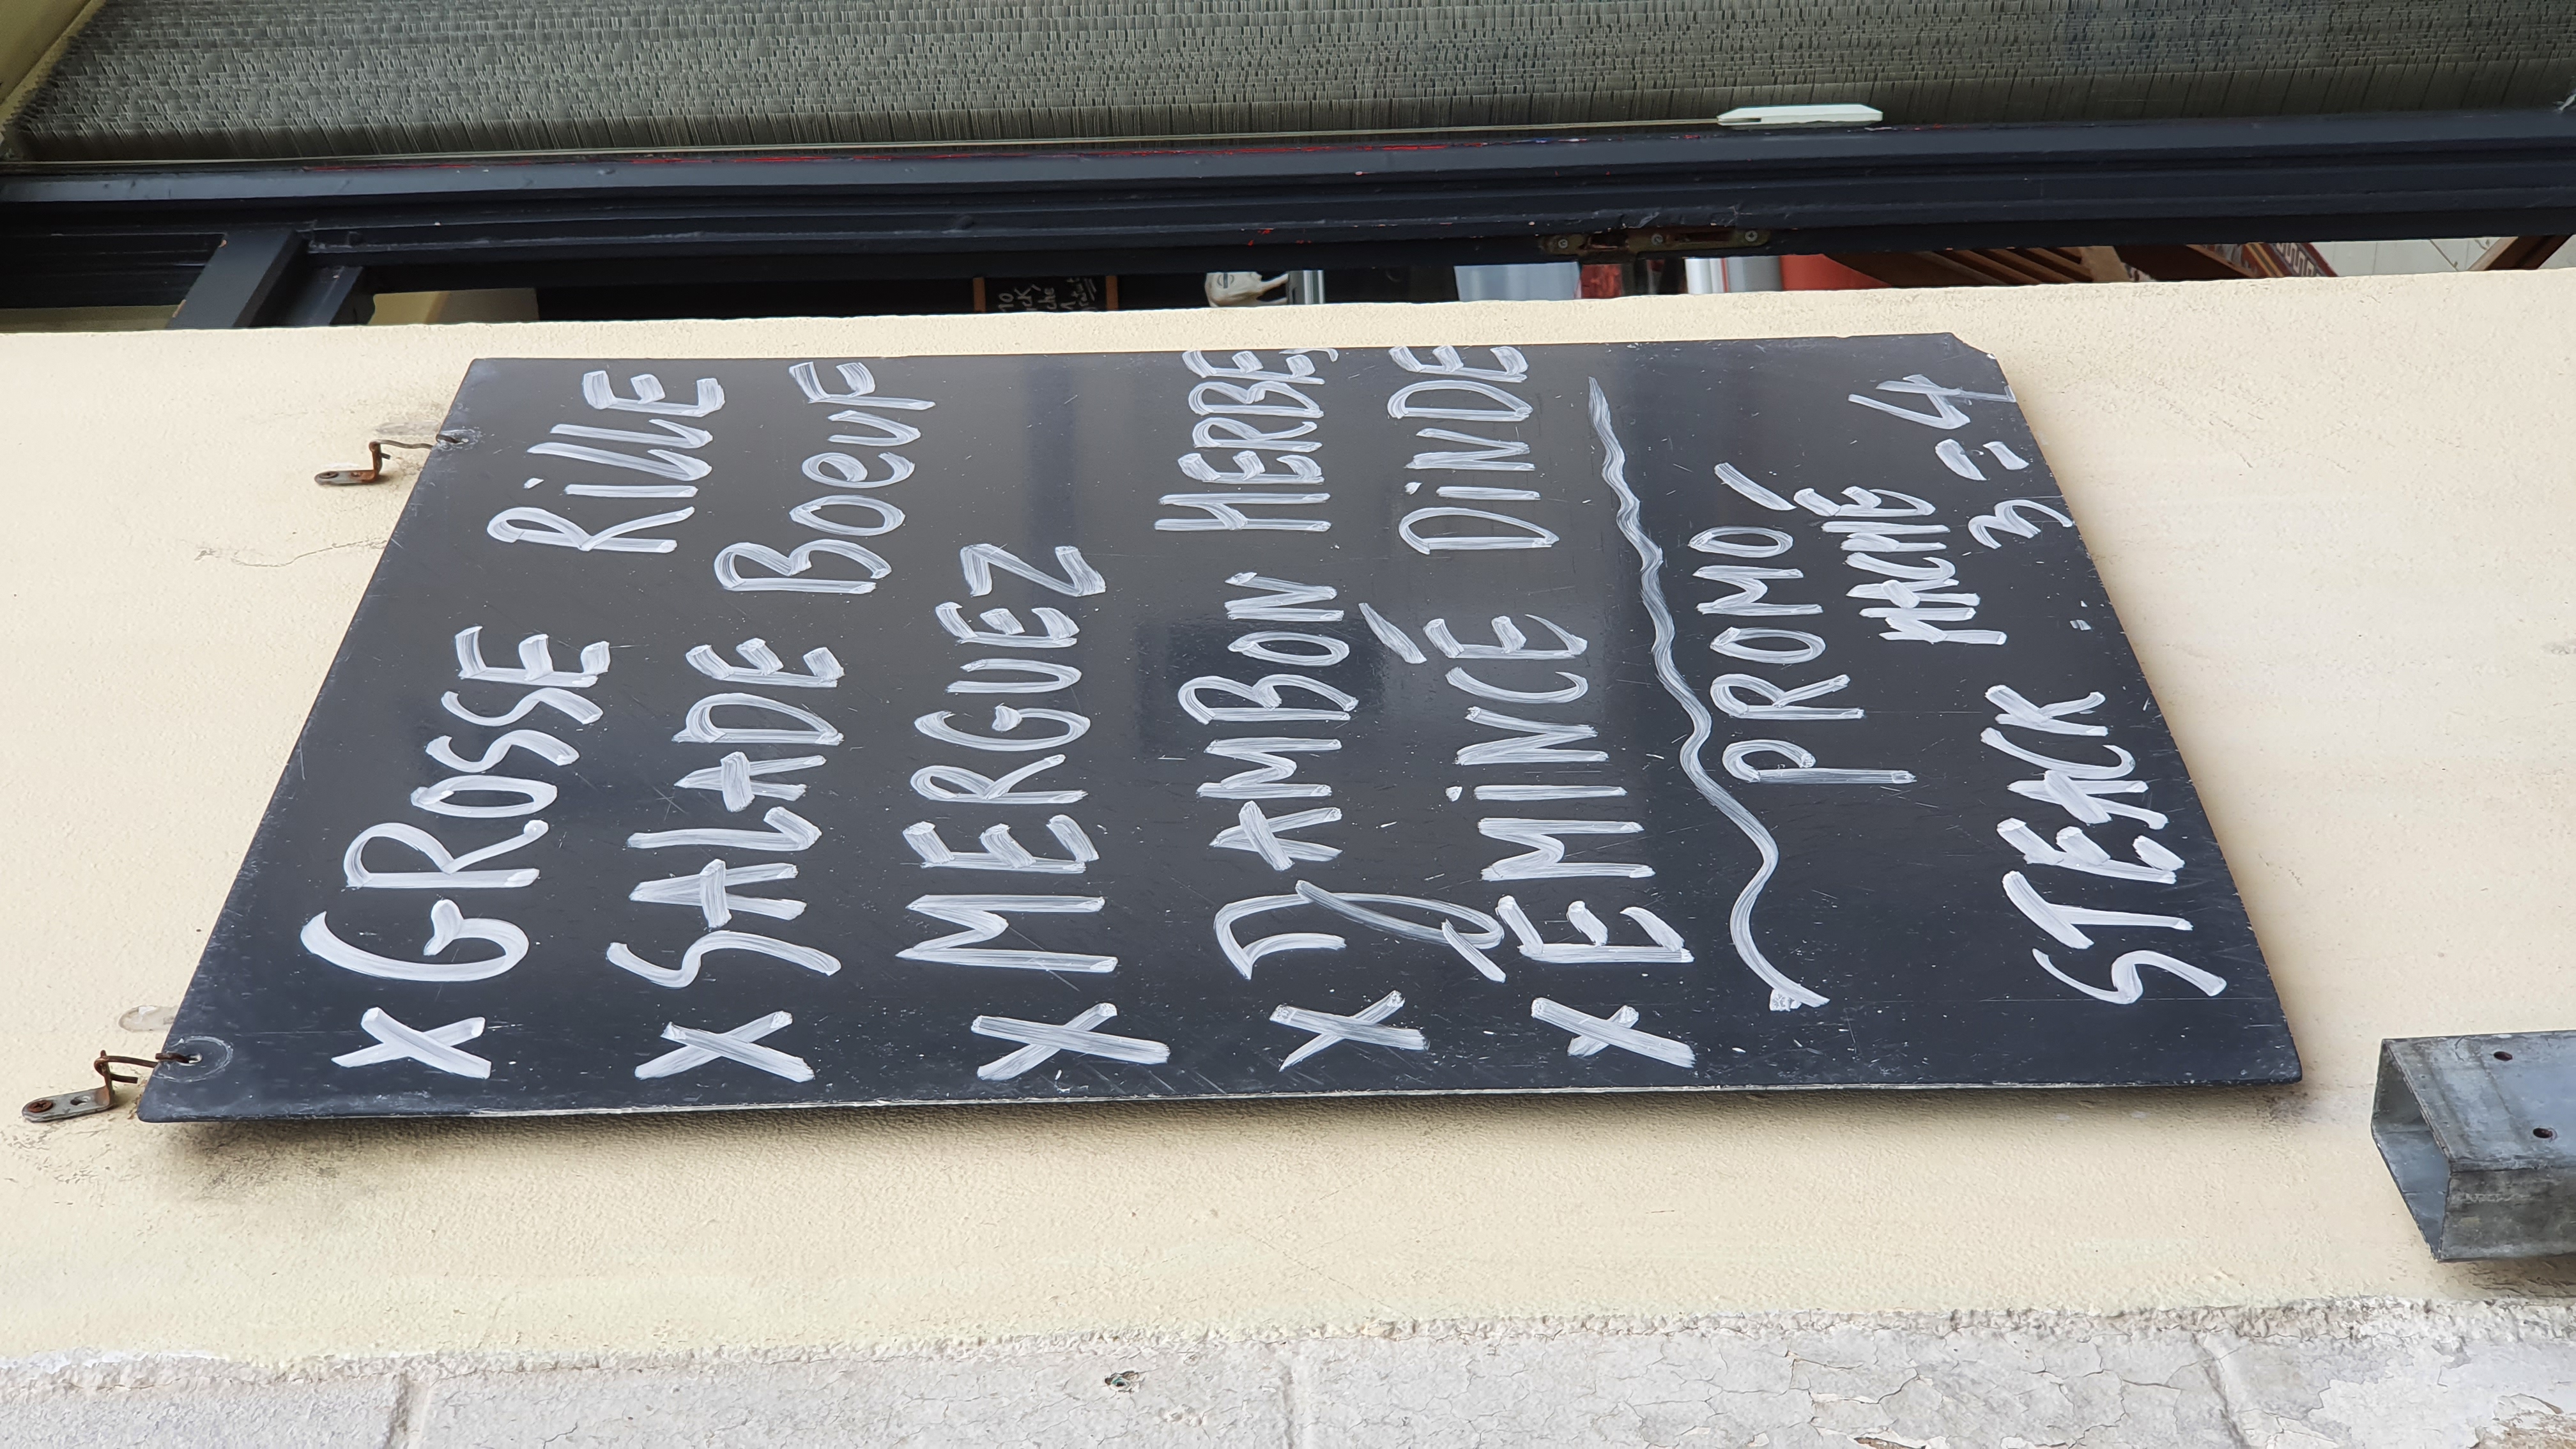 x GROSSE RiLLE
x SALADE BOeuF
x MERGUEZ
x JAMBON HERBES
x ÉMiNCÉ DiNDE
PROMO
STEACK HACHÉ
3 = 4